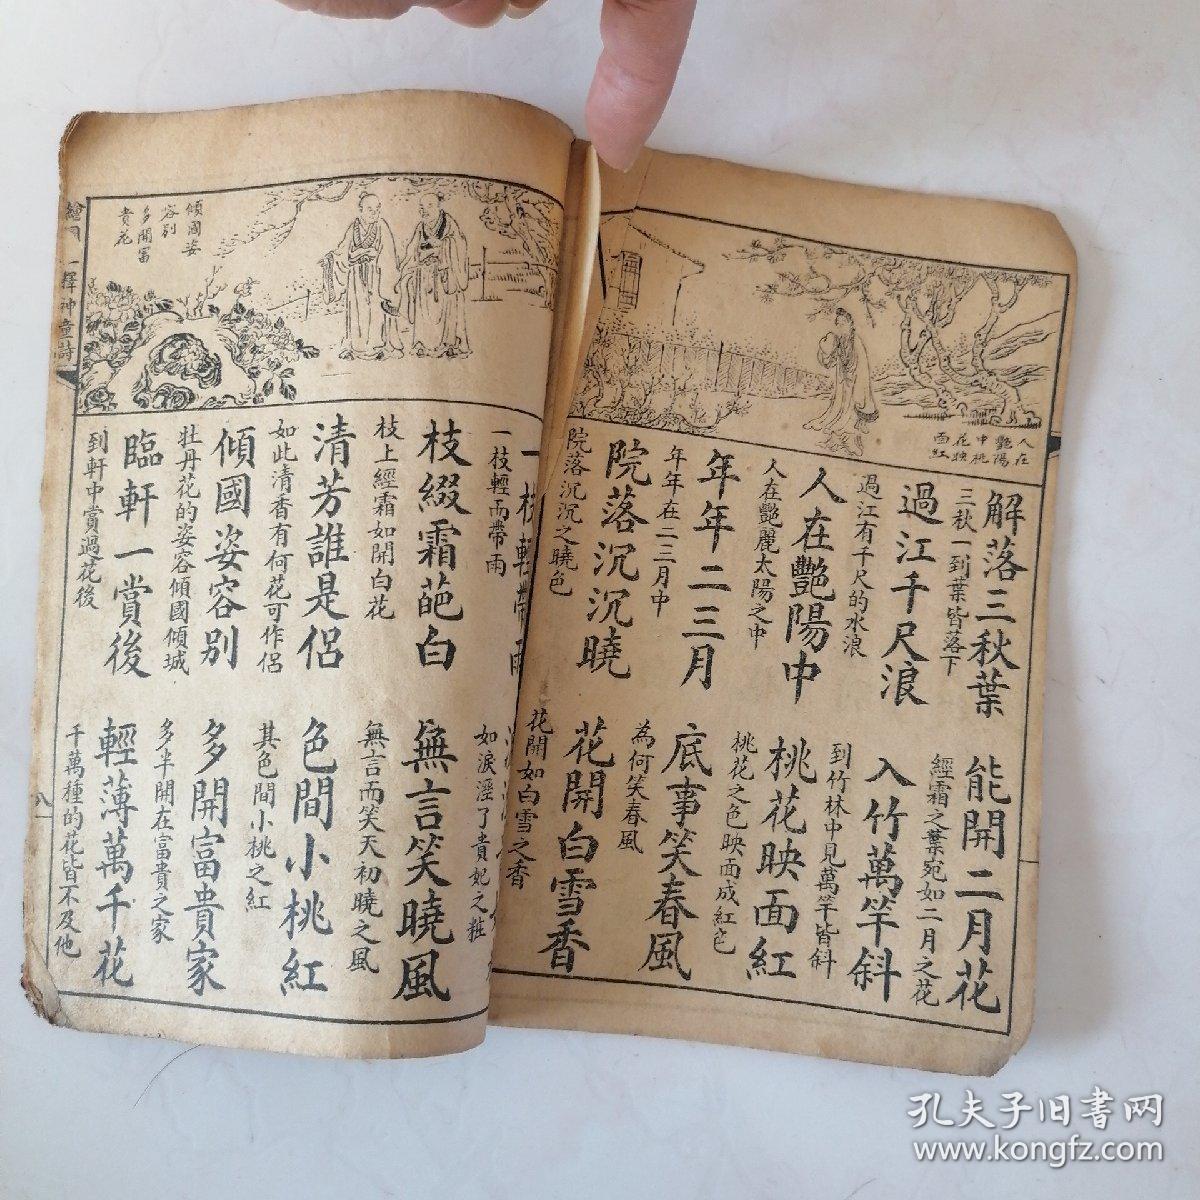 人在
艷陽
中桃
花映
面紅
解落三秋葉
能開二月花
三秋一到葉皆落下
經霜之葉宛如二月之花
過江千尺浪
入竹萬竿斜
過江有千尺的水浪
到竹林中見萬竿皆斜
人在艷陽中
桃花映面紅
人在艷麗太陽之中
桃花之色映面成紅色
年年二三月
底事笑春風
年年在二三月中
為何笑春風
院落沉沉曉
花開白雪香
院落沉沉之曉色
花開如白雪之香
一枝輕帶雨
一枝輕而帶雨
如淚溼了貴妃之粧
枝綴霜葩白
無言笑曉風
枝上經霜如開白花
無言而笑天初曉之風
清芳誰是侶
色間小桃紅
如此清香有何花可作侶
其色間小桃之紅
傾國姿容別
多開富貴家
牡丹花的姿容傾國傾城
多半開在富貴之家
臨軒一賞後
輕薄萬千花
到軒中賞過花後
千萬種的花皆不及他
傾國姿
容別
多開富
貴花
釋神童詩
八
孔夫子旧书网
www.kongfz.com